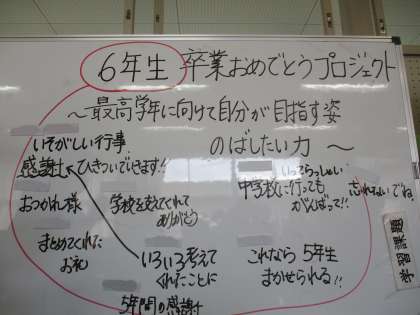 6年生 卒業おめでとうプロジェクト
～最高学年に向けて自分が目指す姿
のばしたい力～
いそがしい行事
感謝
ひきついでいけます!!
おつかれ様
まとめてくれた
お礼
学校を支えてくれて
ありがとう
いろいろ考えて
くれたことに
5年間の感謝
いってらっしゃい
中学校に行っても
がんばって!!
忘れないでね
これなら 5年生
まかせられる!!
学習課題